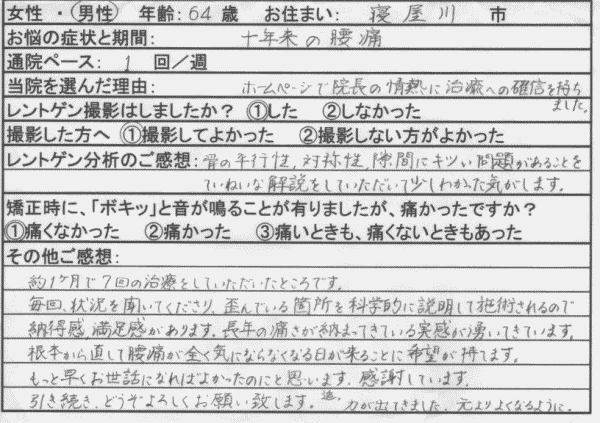 女性 ・ 男性 年齢：64歳 お住まい： 寝屋川 市
お悩の症状と期間： 十年来の腰痛
通院ペース： 1 回／週
当院を選んだ理由： ホームページで院長の情熱に治療への確信を持ち
ました。
レントゲン撮影はしましたか？ ①した ②しなかった
撮影した方へ ①撮影してよかった ②撮影しない方がよかった
レントゲン分析のご感想：骨の平行性,対称性,隙間にキツい問題があることを
ていねいな解説をしていただいて少しわかった気がします。
矯正時に、「ボキッ」と音が鳴ることが有りましたが、痛かったですか？
①痛くなかった ②痛かった ③痛いときも、痛くないときもあった
その他ご感想：
約1ヶ月で7回の治療をしていただいたところです。
毎回、状況を聞いてくださり、歪んでいる箇所を科学的に説明して施術されるので
納得感、満足感があります。長年の痛さが納まってきている実感が湧いてきています。
根本から直して腰痛が全く気にならなくなる日が来ることに希望が持てます。
もっと早くお世話になればよかったのにと思います。感謝しています。
引き続き、どうぞよろしくお願い致します。 追. 力が出てきました、元よりよくなるように。